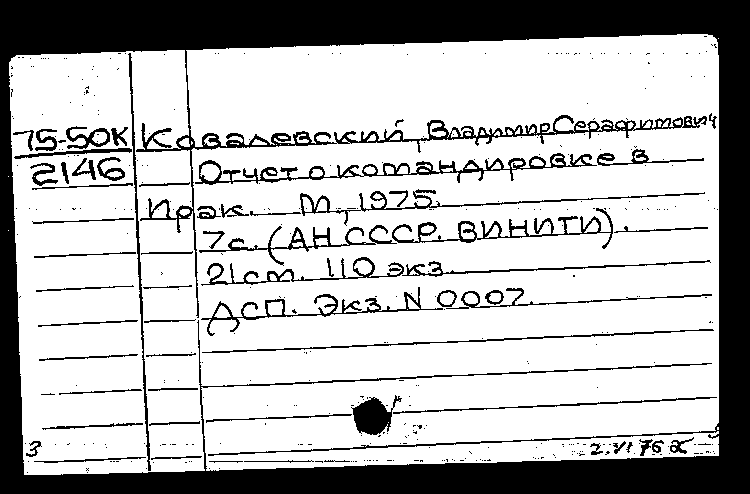 75-50К Ковалевский, Владимир Серафимович
2146 Отчет о командировке в
Ирак. М., 1975.
7с. (АН СССР. ВИНИТИ).
21 см. 110 экз.
ДСП. Экз. N 0007.
3 2.VI 76